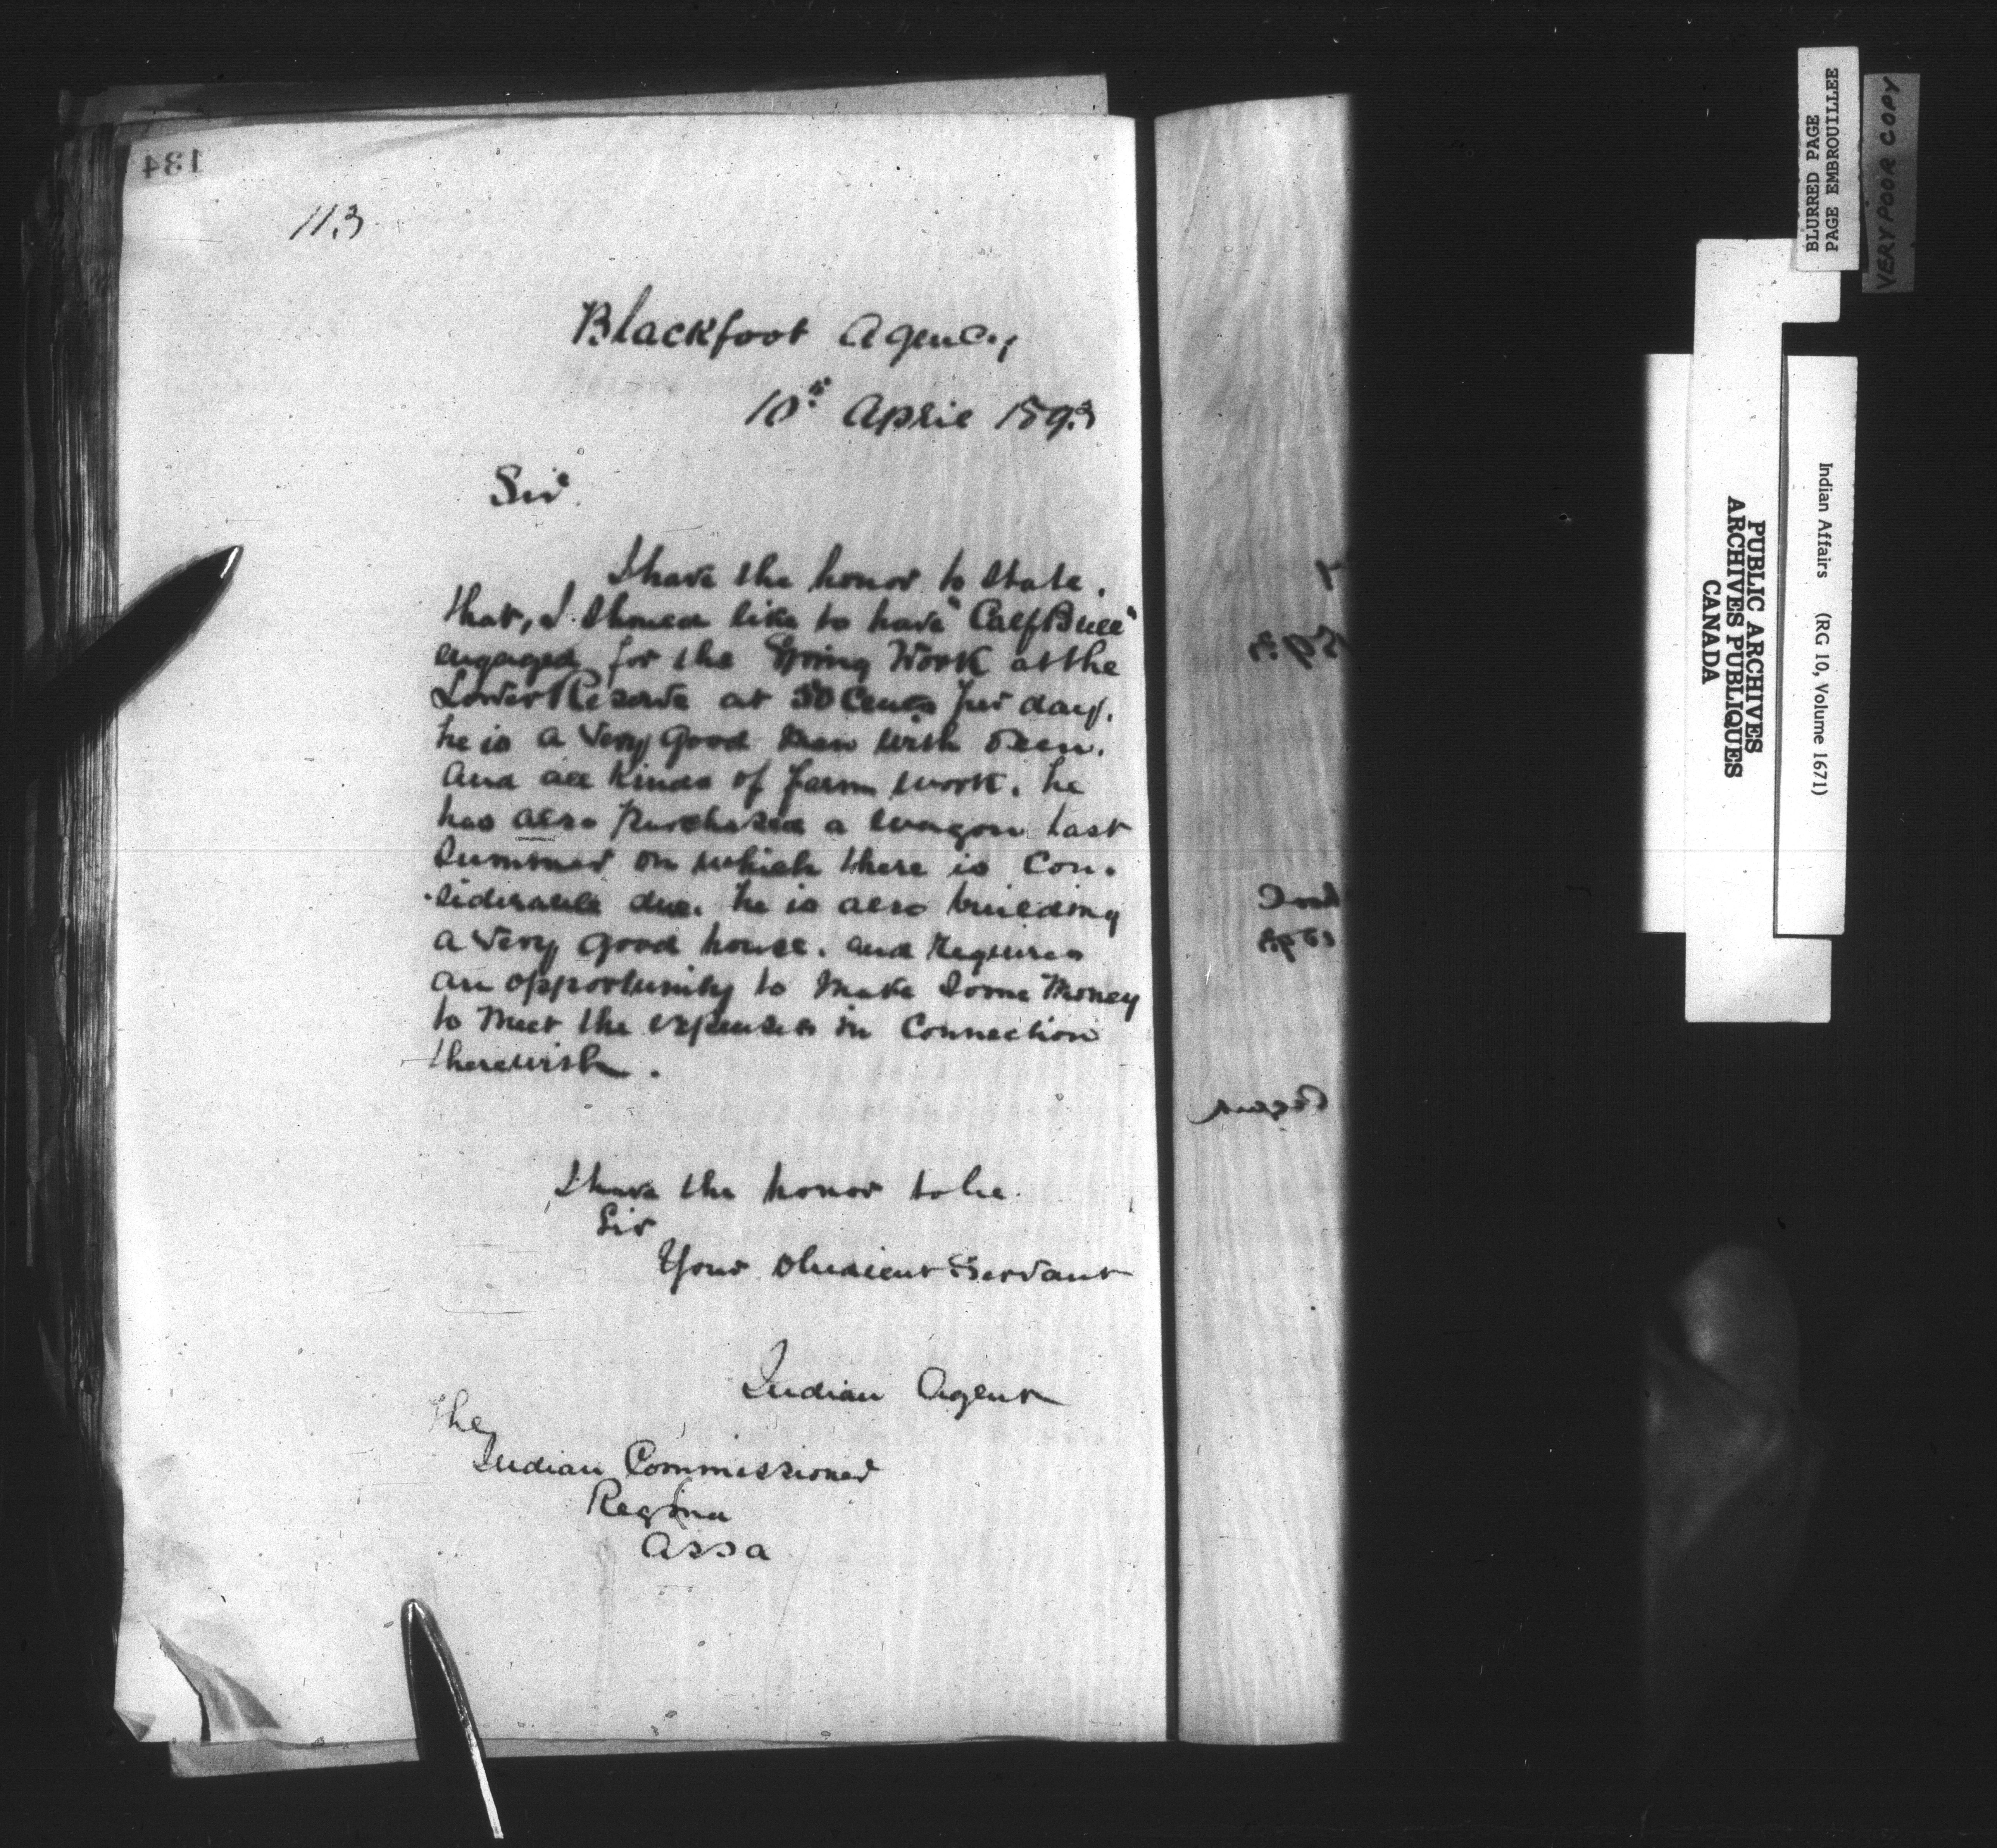 134
113
Blackfoot Agency
10th April 1893
Sir
I have the honor to state,
that, I should like to have "Calf Bull"
engaged for the Spring Work at the
Lower Reserve at 50 Cents per day.
he is a very good man with Oxen.
and all kinds of farm work. he
has also purchased a wagon last
summer on which there is con-
-siderable due. he is also building
a very good house. and requires
an opportunity to make some money
to meet the expenses in connection
therewith.
I have the honor to be
Sir
Your obedient Servant
Indian Agent
The
Indian Commissioner
Regina
Assa
BLURRED PAGE
PAGE EMBROUILLEE
VERY POOR COPY
Indian Affairs (RG 10, Volume 1671)
PUBLIC ARCHIVES
ARCHIVES PUBLIQUES
CANADA